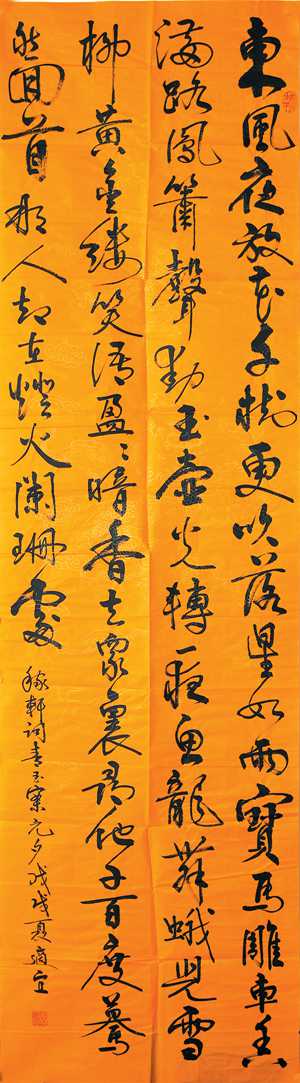 東風夜放花千樹更吹落星如雨寶馬雕車香
滿路鳳簫聲動玉壺光轉一夜魚龍舞蛾兒雪
柳黃金縷笑語盈〻暗香去眾裏尋他千百度驀
然回首那人却在燈火闌珊處
稼軒詞青玉案元夕戊戌夏適宜